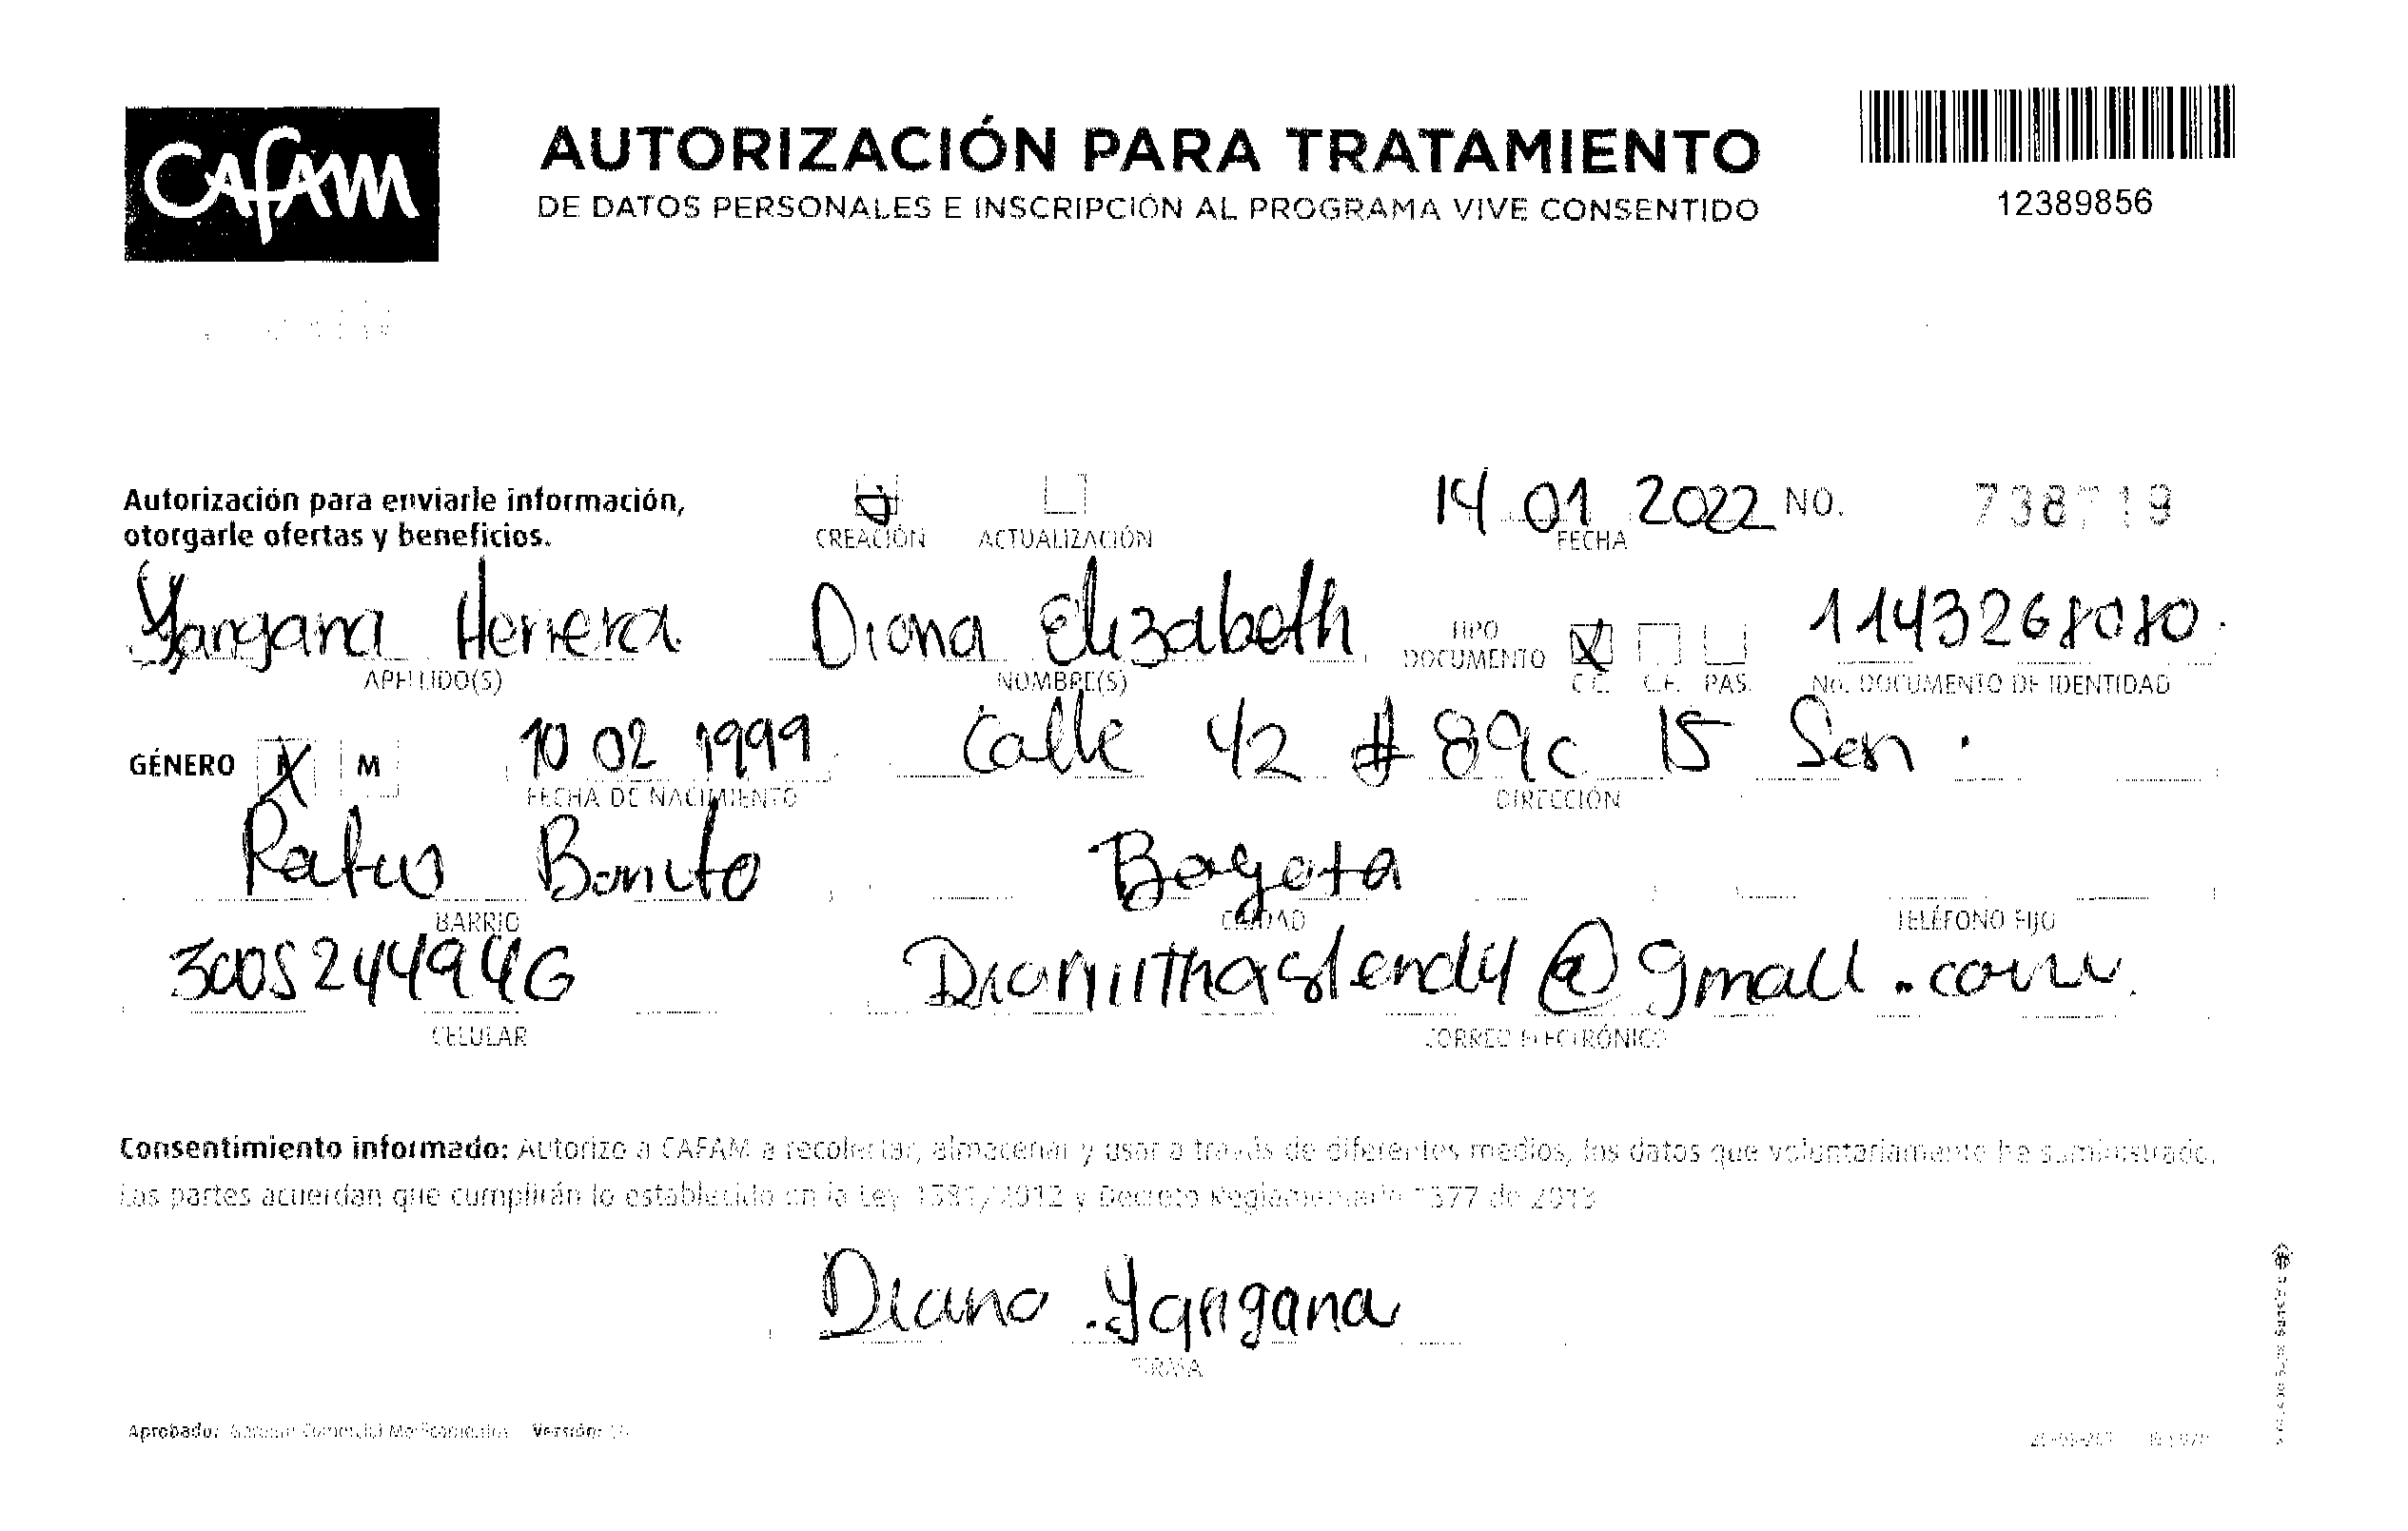 CAFAM
AUTORIZACIÓN PARA TRATAMIENTO
DE DATOS PERSONALES E INSCRIPCIÓN AL PROGRAMA VIVE CONSENTIDO
12389856
Autorización para enviarle información,
otorgarle ofertas y beneficios.
CREACIÓN ACTUALIZACIÓN
14 01 2022 NO.
FECHA
Yangana Herrera Diana Elizabeth TIPO DOCUMENTO 1143268080.
APELLIDO(S) NOMBRE(S) C.C. C.E. PAS. No. DOCUMENTO DE IDENTIDAD
GÉNERO M 10 02 1999 Calle 42 # 89c 15 Sen.
FECHA DE NACIMIENTO DIRECCIÓN
Bonito Bogota
BARRIO CIUDAD TELÉFONO FIJO
3005244946 @gmail.com.
CELULAR CORREO ELECTRÓNICO
Consentimiento informado: Autorizo a CAFAM a recolectar, almacenar y usar a través de diferentes medios, los datos que voluntariamente he suministrado.
Las partes acuerdan que cumplirán lo establecido en la Ley 1581/2012 y Decreto Reglamentario 1377 de 2013
Diana Yangana
FIRMA
Aprobado: Versión: